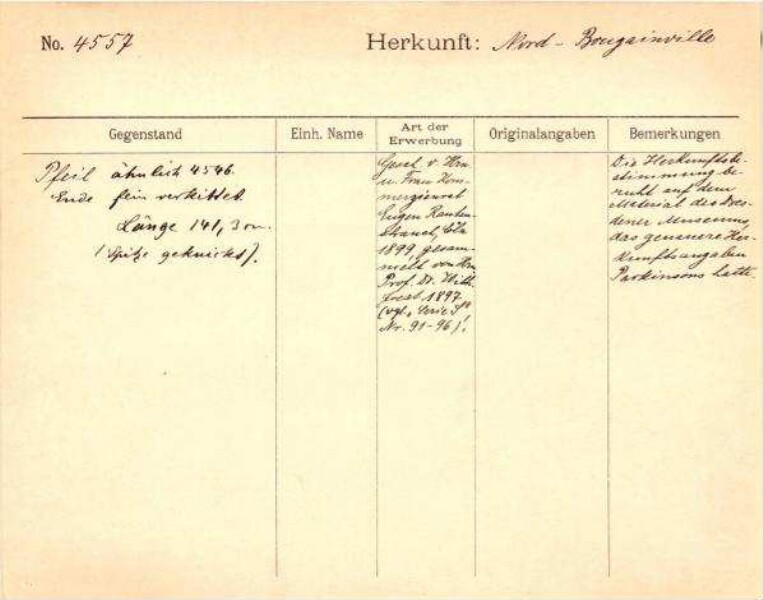 No. 4557
Herkunft: Nord - Bougainville
Gegenstand
Einh. Name
Art der
Erwerbung
Originalangaben
Bemerkungen
Pfeil ähnlich 4546.
Ende fein verkittet.
Länge 141,3 cm.
(Spitze geknickt).
Gesch. v. Hrn
u. Frau Kom-
merzienrat
Eugen Rauten-
strauch, Cöln
1899, gesam-
melt von Hrn
Prof. Dr. Wilh.
1897
(vgl. "Serie I"
Nr. 91-96)!
Die Herkunftsbe-
stimmung be-
ruht auf dem
Material des Dres-
dener Museums,
das genauere Her-
kunftsangaben
Parkinsons hatte.